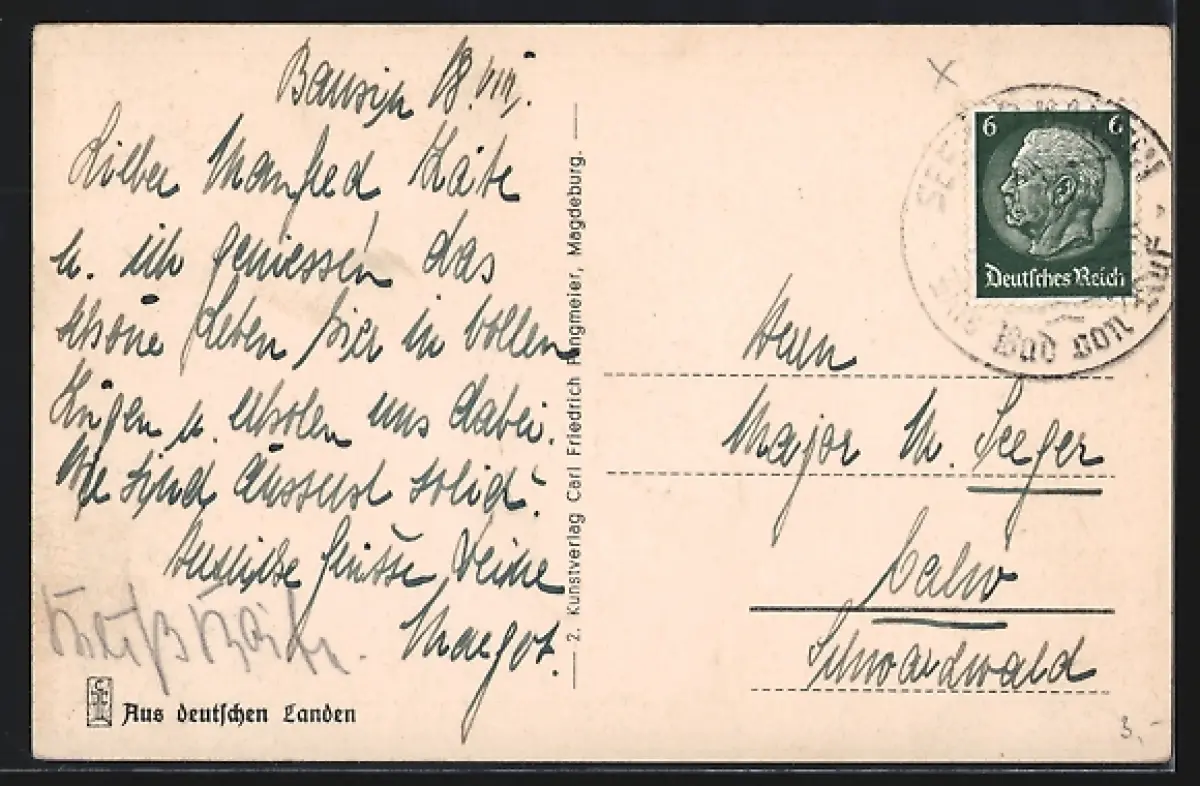 Bansin 18. VIII.
Lieber Manfred Käte
u. ich geniessen das
schöne Leben hier in vollen
Zügen u. erholen uns dabei.
Wir sind äusserst solid.
Herzliche Grüsse Deine
Margot.
Gruß Käte.
Aus deutschen Landen
2. Kunstverlag Carl Friedrich Fangmeier, Magdeburg.
6 6
Deutsches Reich
Bad von
Herrn
Major M. Seeger
Calw
Schwarzwald
3,-